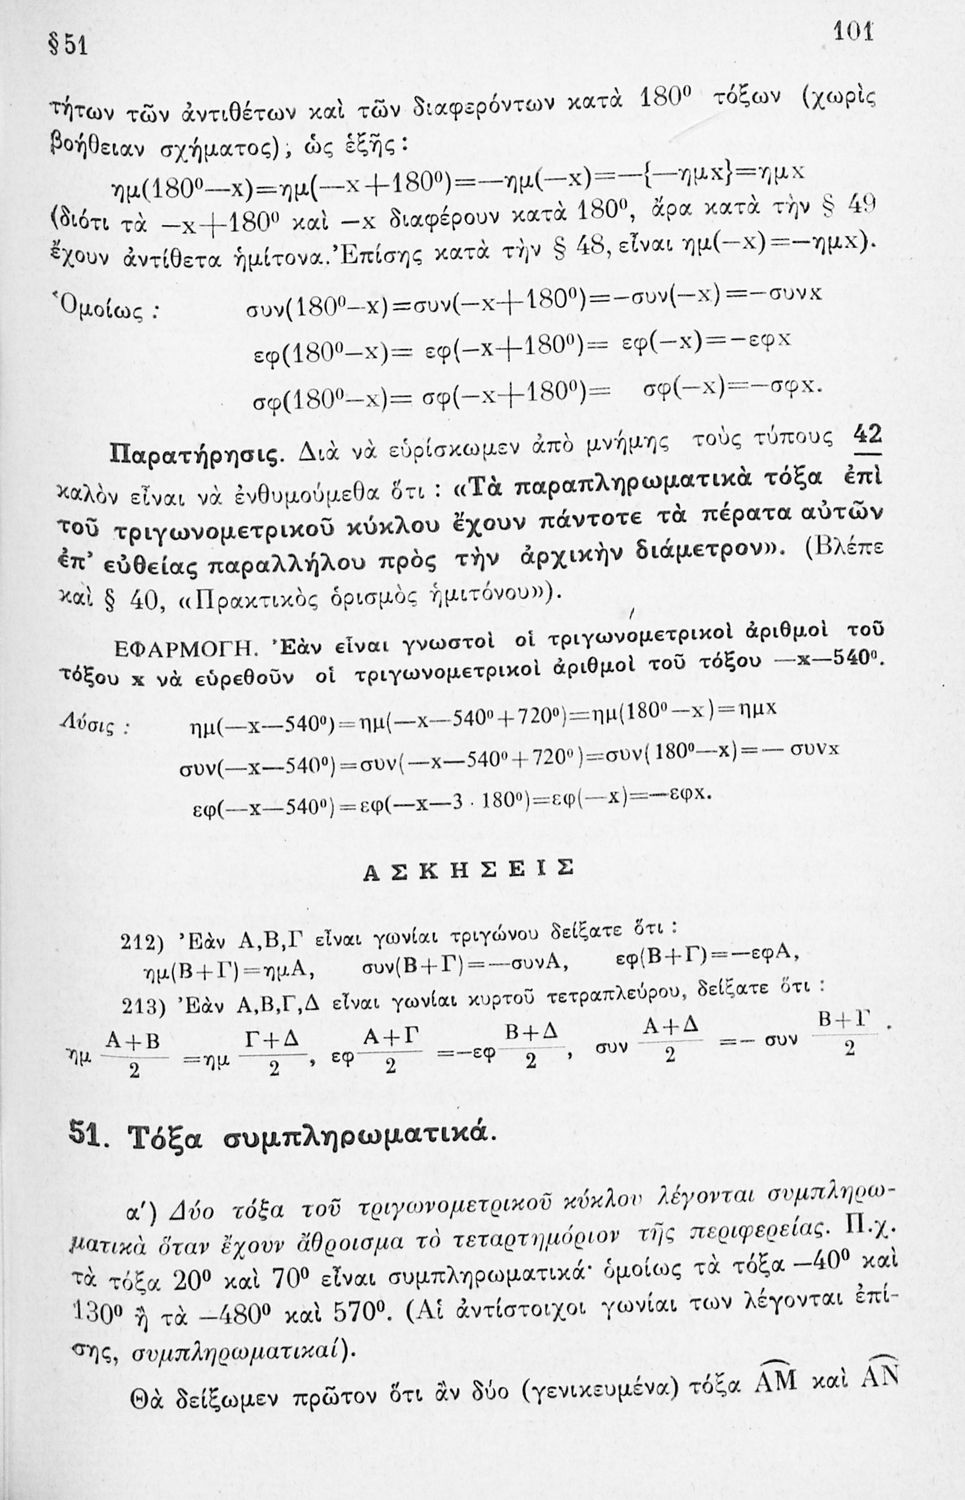 § 51 101
τήτων τῶν ἀντιθέτων καὶ τῶν διαφερόντων κατὰ 180⁰ τόξων (χωρὶς
βοήθειαν σχήματος), ὡς ἑξῆς :
ημ(180⁰—x)=ημ(—x+180⁰)=—ημ(—x)=—{—ημx}=ημx
(διότι τὰ —x+180⁰ καὶ —x διαφέρουν κατὰ 180⁰, ἄρα κατὰ τὴν § 49
ἔχουν ἀντίθετα ἡμίτονα. Ἐπίσης κατὰ τὴν § 48, εἶναι ημ(—x)=—ημx).
Ὁμοίως : συν(180⁰—x)=συν(—x+180⁰)=—συν(—x)=—συνx
εφ(180⁰—x)= εφ(—x+180⁰)= εφ(—x)=—εφx
σφ(180⁰—x)= σφ(—x+180⁰)= σφ(—x)=—σφx.
Παρατήρησις. Διὰ νὰ εὑρίσκωμεν ἀπὸ μνήμης τοὺς τύπους 42
καλὸν εἶναι νὰ ἐνθυμούμεθα ὅτι : «Τὰ παραπληρωματικὰ τόξα ἐπὶ
τοῦ τριγωνομετρικοῦ κύκλου ἔχουν πάντοτε τὰ πέρατα αὐτῶν
ἐπ' εὐθείας παραλλήλου πρὸς τὴν ἀρχικὴν διάμετρον». (Βλέπε
καὶ § 40, «Πρακτικὸς ὁρισμὸς ἡμιτόνου»).
ΕΦΑΡΜΟΓΗ. Ἐὰν εἶναι γνωστοὶ οἱ τριγωνομετρικοὶ ἀριθμοὶ τοῦ
τόξου x νὰ εὑρεθοῦν οἱ τριγωνομετρικοὶ ἀριθμοὶ τοῦ τόξου —x—540⁰.
Λύσις : ημ(—x—540⁰)=ημ(—x—540⁰+720⁰)=ημ(180⁰—x)=ημx
συν(—x—540⁰)=συν(—x—540⁰+720⁰)=συν(180⁰—x)=— συνx
εφ(—x—540⁰)=εφ(—x—3 · 180⁰)=εφ(—x)=—εφx.
ΑΣΚΗΣΕΙΣ
212) Ἐὰν Α,Β,Γ εἶναι γωνίαι τριγώνου δείξατε ὅτι :
ημ(Β+Γ)=ημΑ, συν(Β+Γ)=—συνΑ, εφ(Β+Γ)=—εφΑ,
213) Ἐὰν Α,Β,Γ,Δ εἶναι γωνίαι κυρτοῦ τετραπλεύρου, δείξατε ὅτι :
ημ (Α+Β)/2 =ημ (Γ+Δ)/2 , εφ (Α+Γ)/2 =—εφ (Β+Δ)/2 , συν (Α+Δ)/2 =— συν (Β+Γ)/2 .
51. Τόξα συμπληρωματικά.
α') Δύο τόξα τοῦ τριγωνομετρικοῦ κύκλου λέγονται συμπληρω-
ματικὰ ὅταν ἔχουν ἄθροισμα τὸ τεταρτημόριον τῆς περιφερείας. Π.χ.
τὰ τόξα 20⁰ καὶ 70⁰ εἶναι συμπληρωματικά· ὁμοίως τὰ τόξα —40⁰ καὶ
130⁰ ἢ τὰ —480⁰ καὶ 570⁰. (Αἱ ἀντίστοιχοι γωνίαι των λέγονται ἐπί-
σης, συμπληρωματικαί).
Θὰ δείξωμεν πρῶτον ὅτι ἂν δύο (γενικευμένα) τόξα A͡M καὶ A͡N